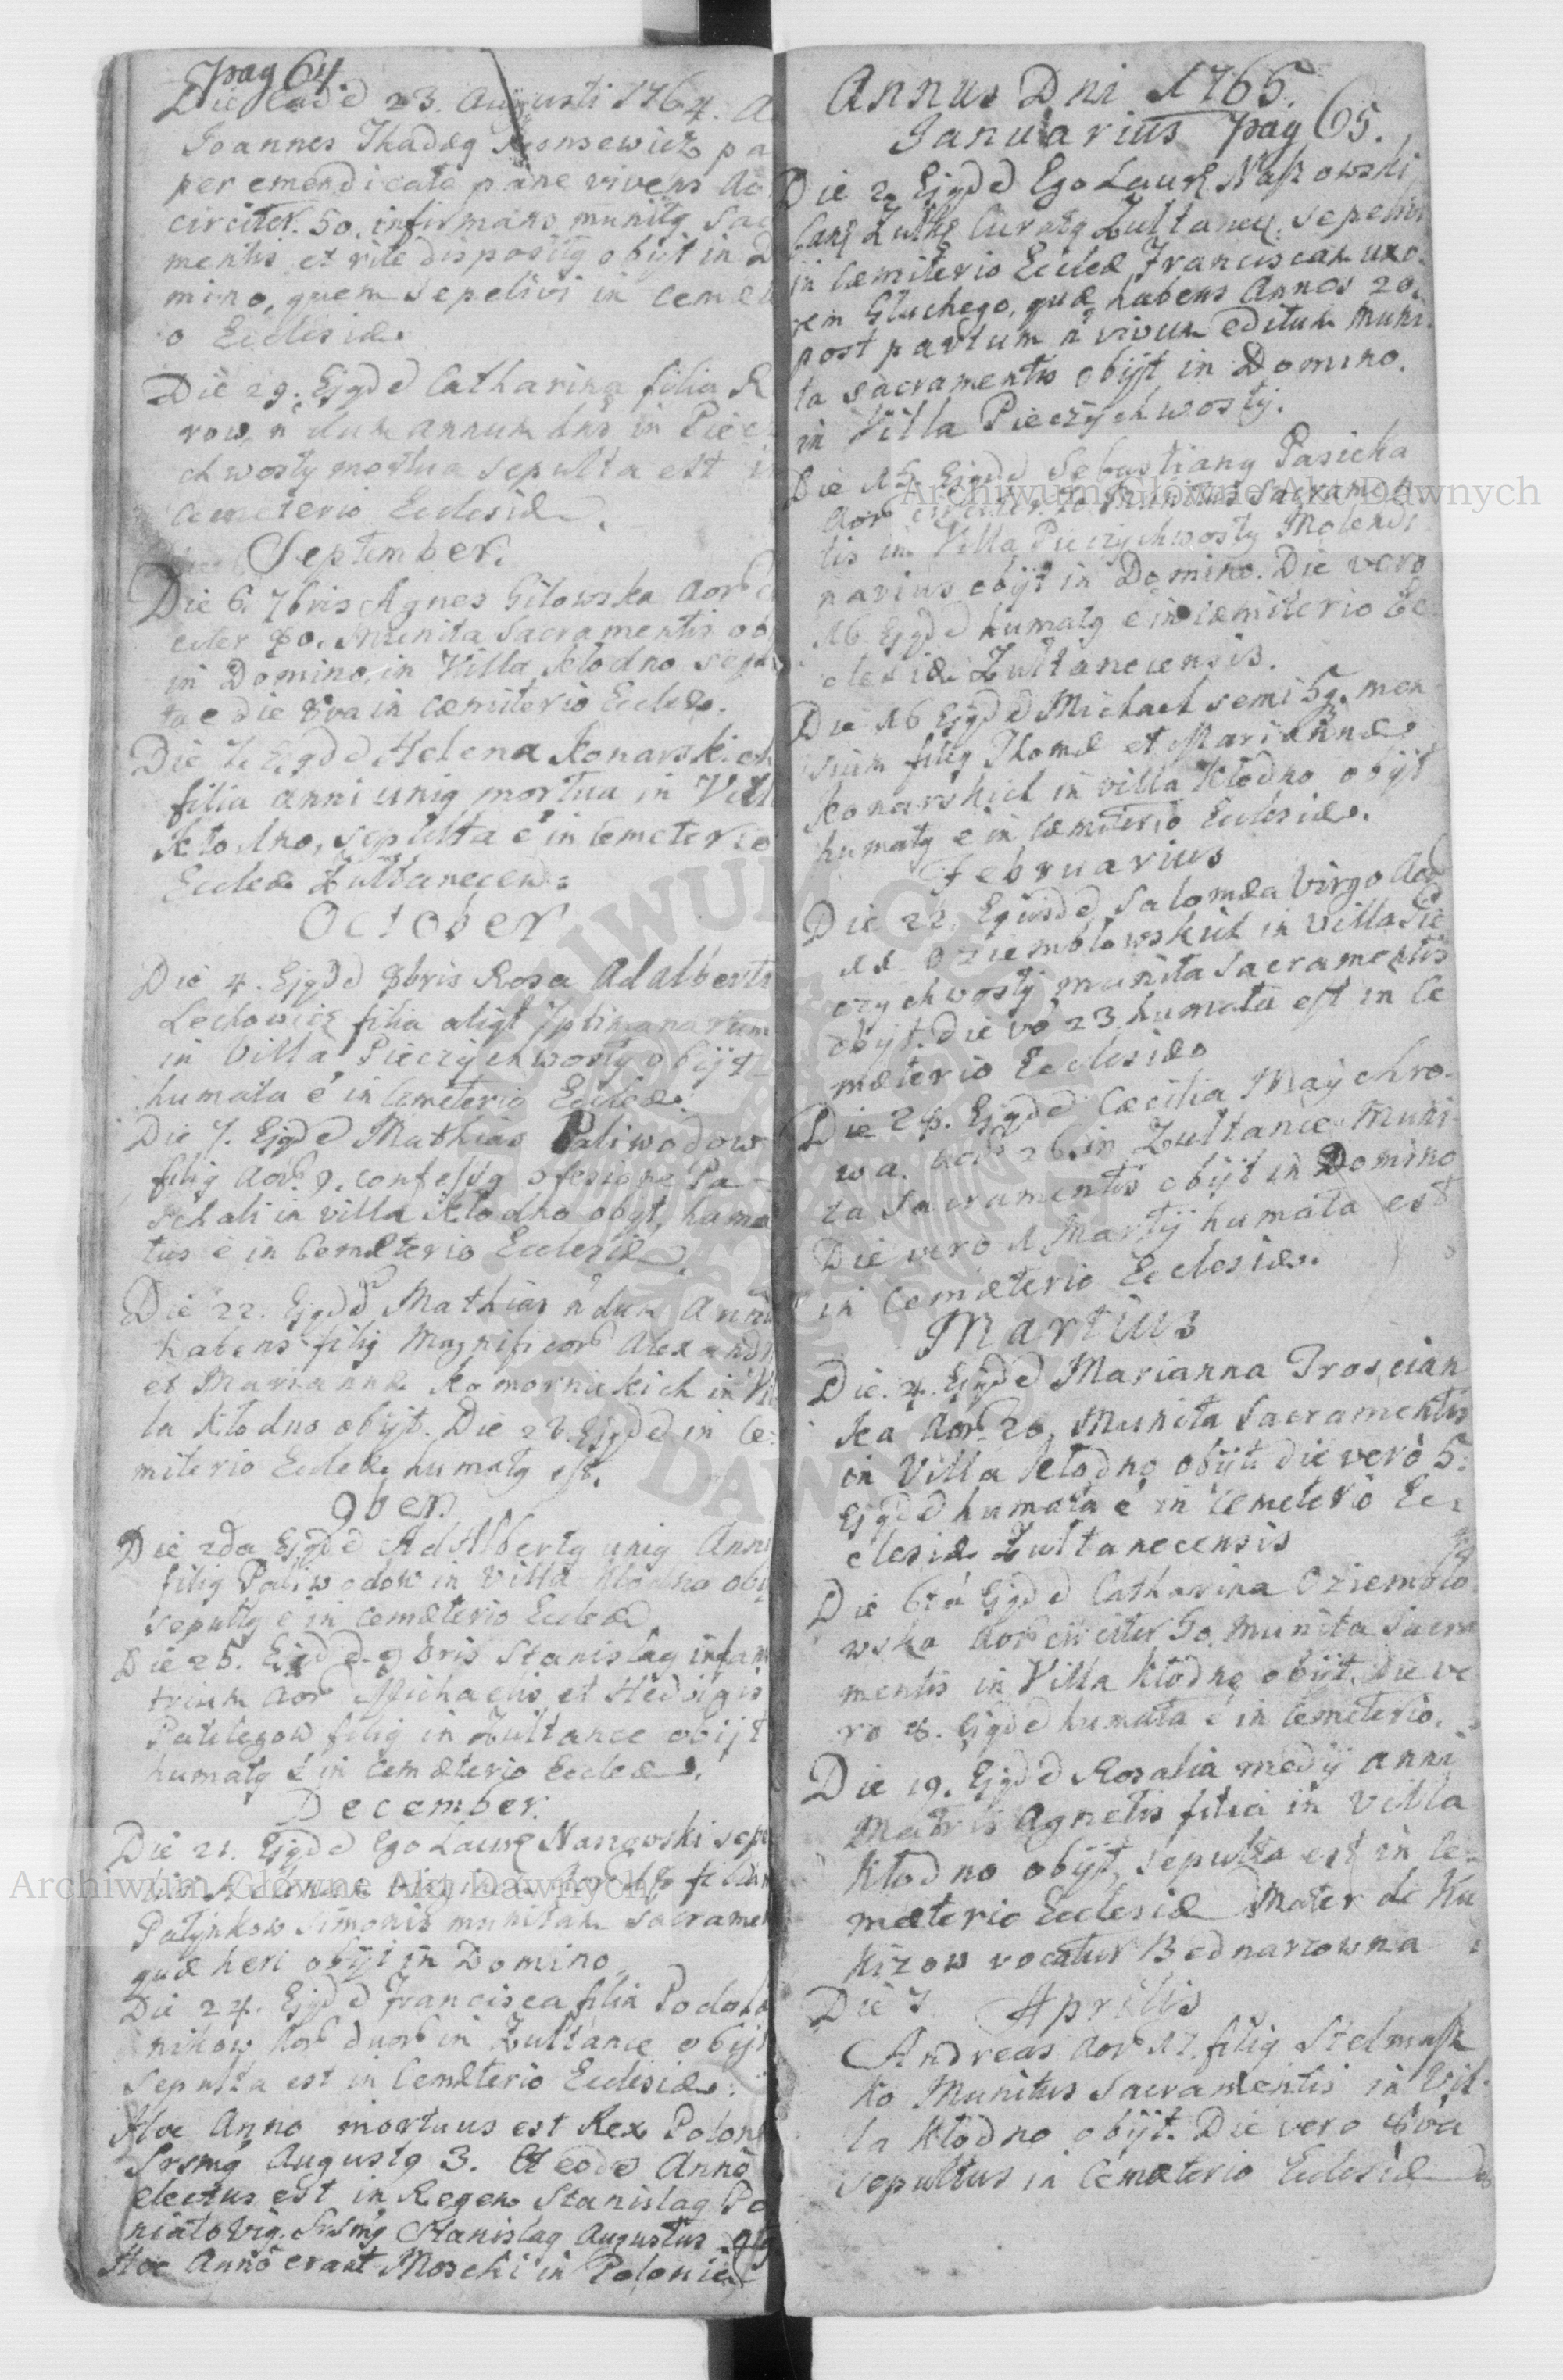 pag 64.
Die ead d 23. Augusti 1764. A
Joannes Thadæg Konsewicz pa
per emendicato pane vivens Ao
circiter. 50. infirmans munitg Sac
mentis et rite dispositg obijt in D
mino, quem sepelivi in cemete
o Ecclesiæ
Die 29. Ejgd d Catharina filia K
row, n dum annum hns in Piec
chwosty mortua sepulta est i
Cemeterio Ecclesiæ.
September.
Die 6. 7bris Agnes Gilowska aor c
citer 80. munita Sacramentis ob
in Domino in Villa Kłodno sepu
ta e die 8va in cæmiterio Eccleæ.
Die 7. Ejgd d Helena Konarskich
filia anni unig mortua in Vill
Kłodno, sepulta e in Cemeterio
Eccleæ Żułtanecens:
October
Die 4. Ejgd d 8bris Rosa Adalberti
Lechowicz filia
in Villa Pieczÿchwosty obijt
humata é in Cemeterio Eccleæ.
Die 7. Ejgd d Mathias Paliwodow
filig aor. 9. confessg Pa-
schali in villa Kłodno obyt, huma
tus é in Cemæterio Ecclesiæ.
Die 22. Ejgd d Mathias ndum Annu
habens filig Magnificor Alexandri
et Mariannæ Komornickich in Vil
la Kłodno obijt. Die 28. Ejgd d in Cæ:
miterio Eccleæ humatg est.
9ber.
Die 2da Ejgd d Adalbertg unig Anni
filig Paliwodow in Villa Kłodno obij
sepultg é in cemæterio Eccleæ
Die 25. Ejd d. 9bris Stanislag infans
trium aor Michaelis et Hedvigis
filig in Żułtance obijt
humatg é in cemæterio Eccleæ.
December.
Die 21. Ejgd d Ego Laurē Naszowski sepe
filiam
Patynkow Simonis munitam sacramen
quæ heri obijt in Domino
Die 24. Ejgd d Francisca filia Podola
nikow Aor duor in Żułtance obijt
Sepulta est in Cemæterio Ecclesiæ:
Hoc Anno mortuus est Rex Poloni
Srsmg Augustg 3. Et eodē Anno
electus est in Regem Stanislag Po
niatovig. Srsmg Stanislag Augustus
Hoc Anno erant Moschi in Poloniæ
Annus Dni 1765.
Januarius pag 65.
Die 2 Ejgd d Ego Laurē Naszowski
Curatg Żułtanec: sepelivi
in Cæmiterio Eccleæ Franciscam uxo-
rem Głuchego, quæ habens Annos 20.
post partum n vivum editum muni-
ta sacramentis obijt in Domino.
in Villa Pieczÿchwosty.
Die 15. Ejgd d Sebastiang Pasieka
aor circiter munitus Sacramen-
tis in Villa Pieczÿchwosty Molendi
narius obijt in Domino. Die vero
16. Ejgd d humatg é in cæmiterio Ec-
clesiæ Żułtanecensis.
Die 16 Ejgd d Michael semi 5g. men
sium filig Thomæ et Mariannæ
Konarskich in villa Kłodno obijt
humatg é in Cæmiterio Ecclesiæ.
Februarius
Die 22. Ejusd d Salomæa Virgo Aor
Dziembłowskich in Villa Pie
czychwosty munita sacramentis
obijt. Die vo 23 humata est in Ce
mæterio Ecclesiæ
Die 28. Ejgd d Cæcilia Maÿchro-
wa. Aor 26. in Żułtance Muni-
ta Sacramentis obijt in Domino
Die vero 1 Martij humata est
in Cemæterio Ecclesiæ.
Martius
Die. 4. Ejgd d Marianna Troscian
ka Aor. 20, Munita Sacramentis
in Villa Kłodno obijt. die verò 5:
Ejgd d humata é in cemeterio Ec-
clesiæ Żułtanecensis
Die 6ta Ejgd d Catharina Dziembło-
wska Aor circiter 50. munita Sacra
mentis in Villa Kłodno obijt. Die ve
ro 8. Ejgd d humata é in Cemeterio.
Die 19. Ejgd d Rosalia medij anni
Matris Agnetis filia in Villa
Kłodno obijt, sepulta est in Ce-
mæterio Ecclesiæ Mater de Ku
kizow vocatur Bednarzowna
Die 7 Aprilis
Andreas Aor 17. filig Stelmasz
ko Munitus Sacramentis in Vil-
la Kłodno obijt. Die vero 8va
sepultus in Cemæterio Ecclesiæ
Archiwum Główne Akt Dawnych
Archiwum Główne Akt Dawnych